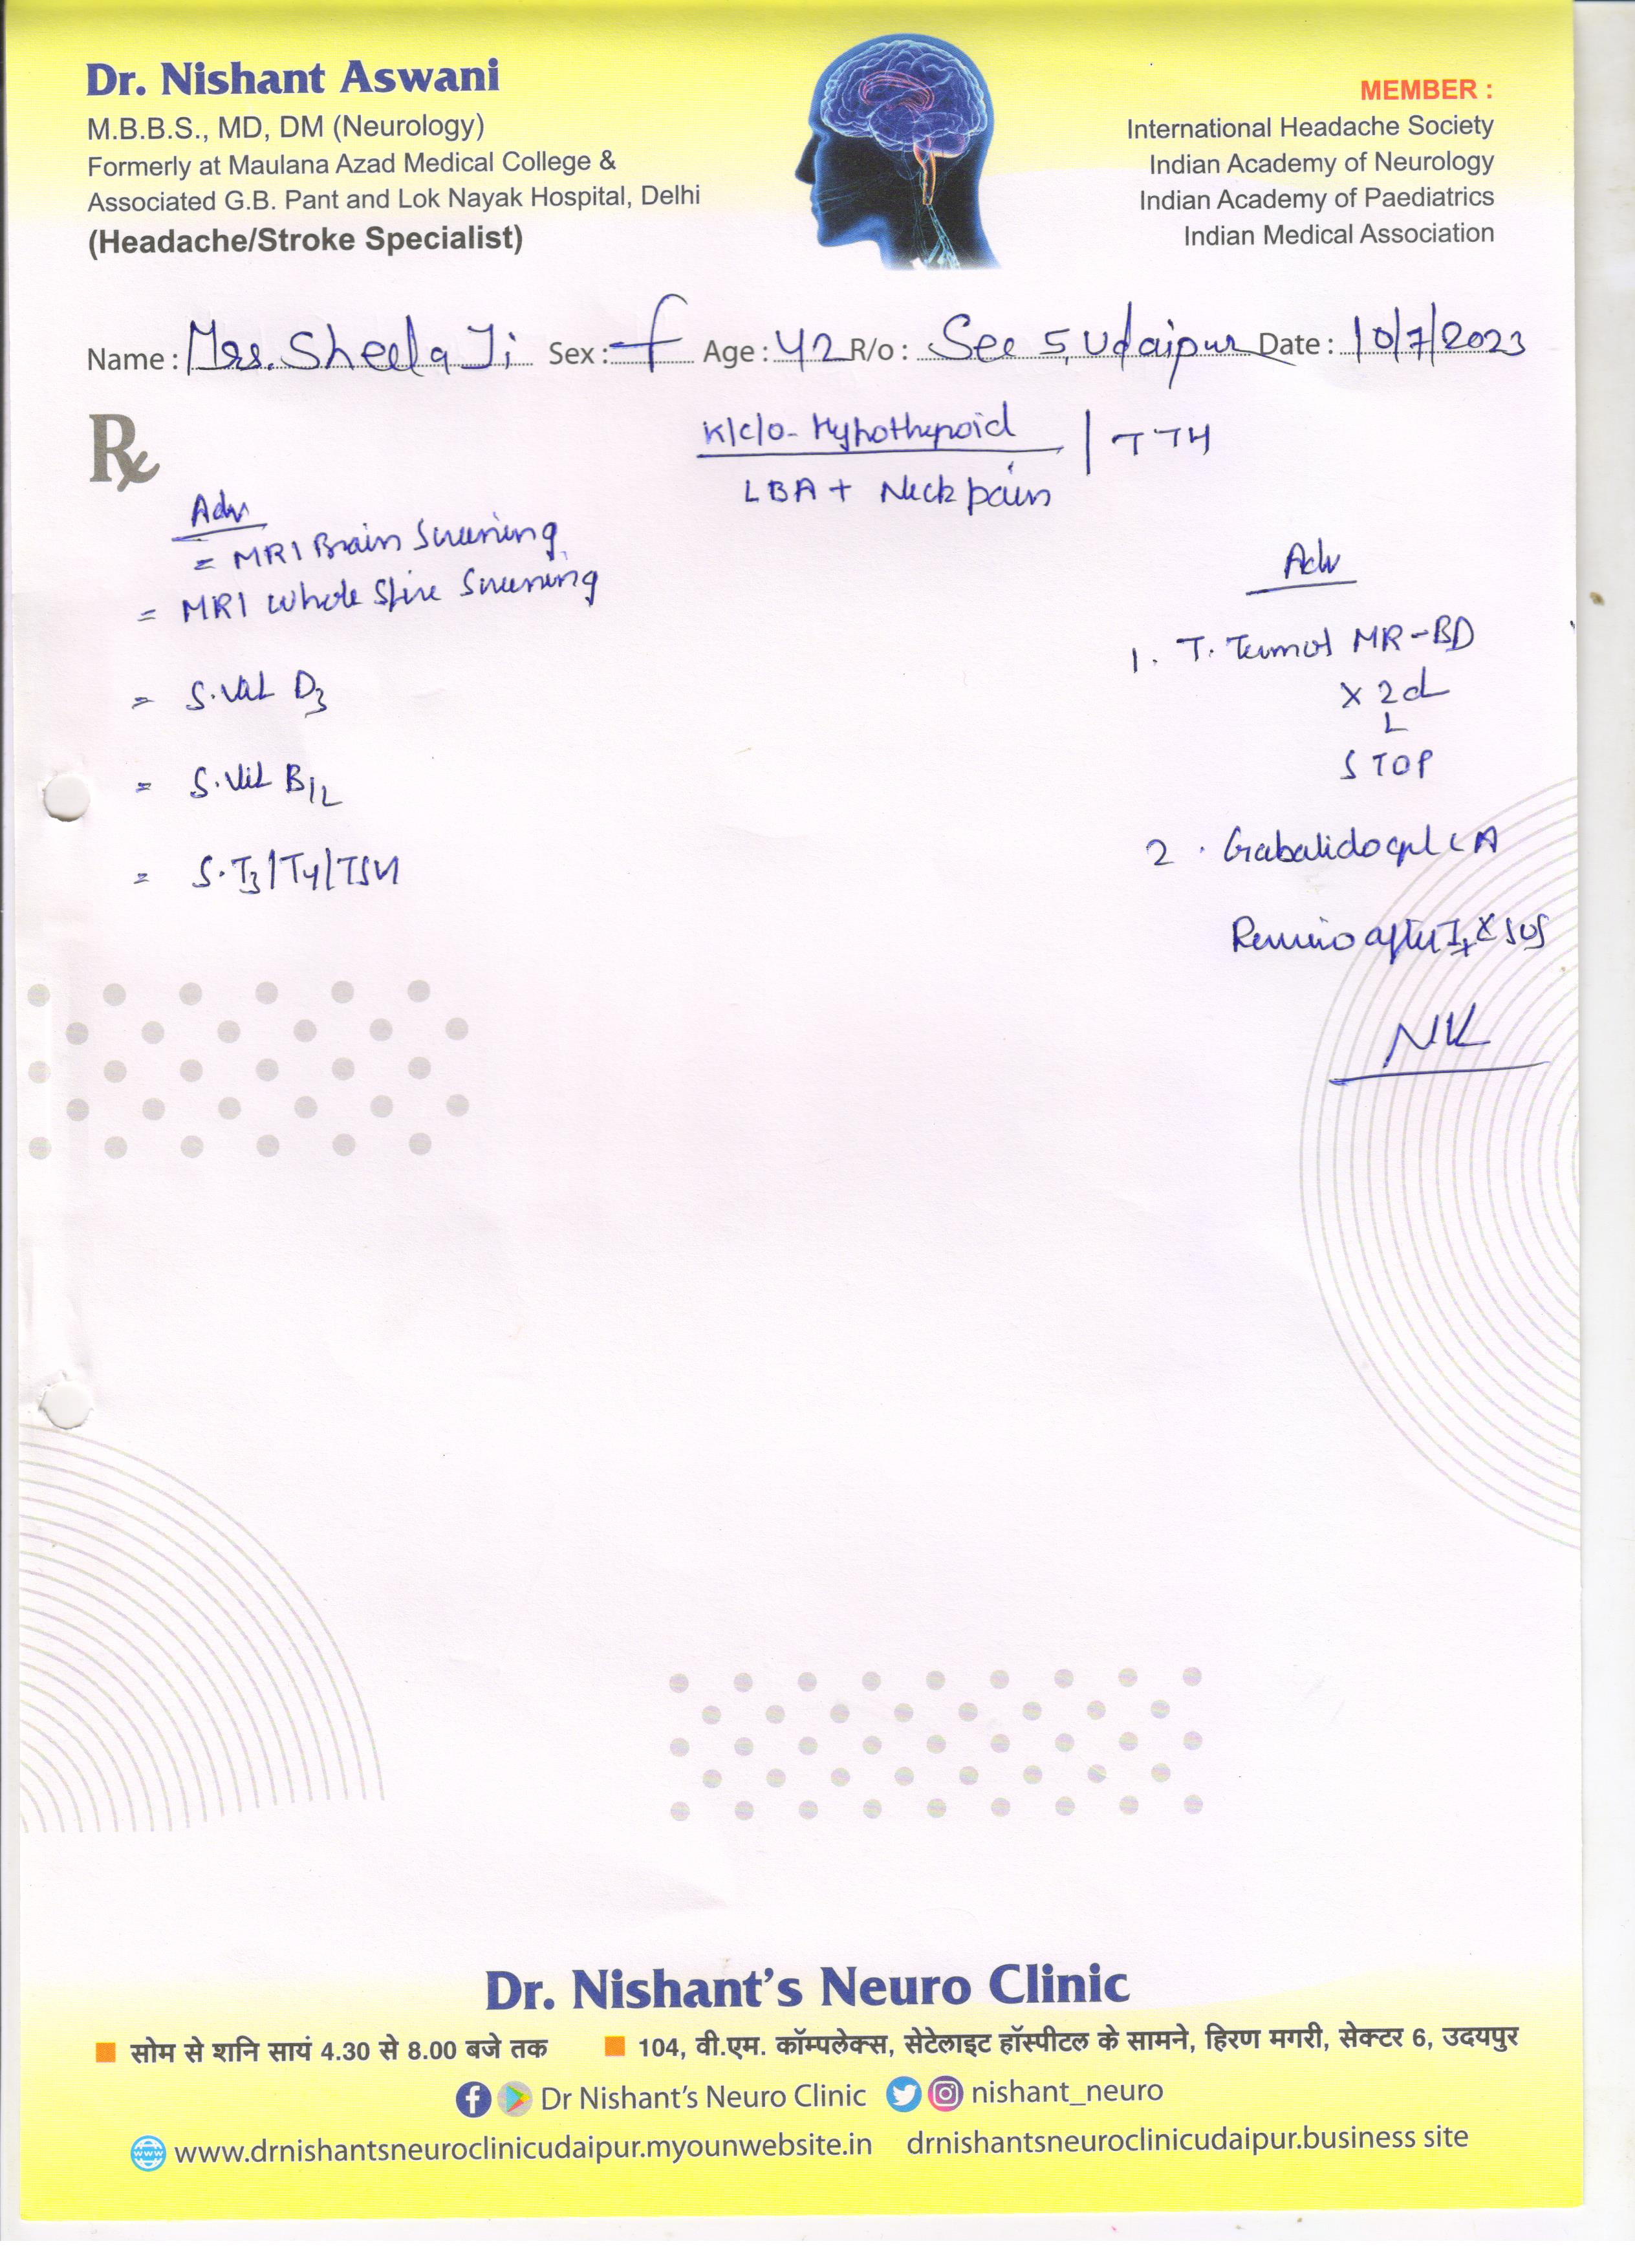 Dr. Nishant Aswani
M.B.B.S., MD, DM (Neurology)
Formerly at Maulana Azad Medical College &
Associated G.B. Pant and Lok Nayak Hospital, Delhi
(Headache/Stroke Specialist)
MEMBER :
International Headache Society
Indian Academy of Neurology
Indian Academy of Paediatrics
Indian Medical Association
Name : Mrs. Sheela Ji Sex : f Age : 42 R/o : Sec 5, Udaipur Date : 10/7/2023
Rx
K/c/o - Hypothyroid | TTH
LBA + Neck pain
Adv
= MRI Brain Screening
= MRI Whole Spine Screening
= S. Vit D3
= S. Vit B12
= S. T3/T4/TSH
Adv
1. T. MR-BD
x 2d
STOP
2. LA
Review after Ix x SOS
NK
Dr. Nishant's Neuro Clinic
सोम से शनि सायं 4.30 से 8.00 बजे तक
104, वी.एम. कॉम्पलेक्स, सेटेलाइट हॉस्पीटल के सामने, हिरण मगरी, सेक्टर 6, उदयपुर
Dr Nishant's Neuro Clinic nishant_neuro
www.drnishantsneuroclinicudaipur.myounwebsite.in drnishantsneuroclinicudaipur.business site